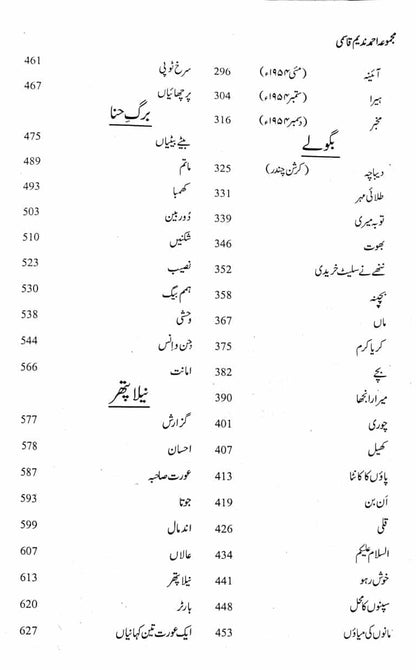 مجموعہ احمد ندیم قاسمی
آئینہ (مئی ۱۹۵۴ء) 296
ہیرا (ستمبر ۱۹۵۴ء) 304
مخبر (دسمبر ۱۹۵۴ء) 316
بگولے
دیباچہ (کرشن چندر) 325
طلائی مہر 331
توبہ میری 339
بھوت 346
ننھے نے سلیٹ خریدی 352
بچپنہ 358
ماں 367
کریا کرم 375
بچے 382
میرا رانجھا 390
چوری 401
کھیل 407
پاؤں کا کانٹا 413
اَن بن 419
قلی 426
السلام علیکم 434
خوش رہو 441
سپنوں کا محل 448
مانوں کی میاؤں 453
سرخ ٹوپی 461
پرچھائیاں 467
برگِ حنا
بیٹے بیٹیاں 475
ماتم 489
کھمبا 493
دُوربین 503
شکنیں 510
نصیب 523
ہمم بیگ 530
وحشی 538
جِن و اِنس 544
امانت 566
نیلا پتھر
گزارش 577
احسان 578
عورت صاحبہ 587
جوتا 593
اندمال 599
عالاں 607
نیلا پتھر 613
بارٹر 620
ایک عورت تین کہانیاں 627